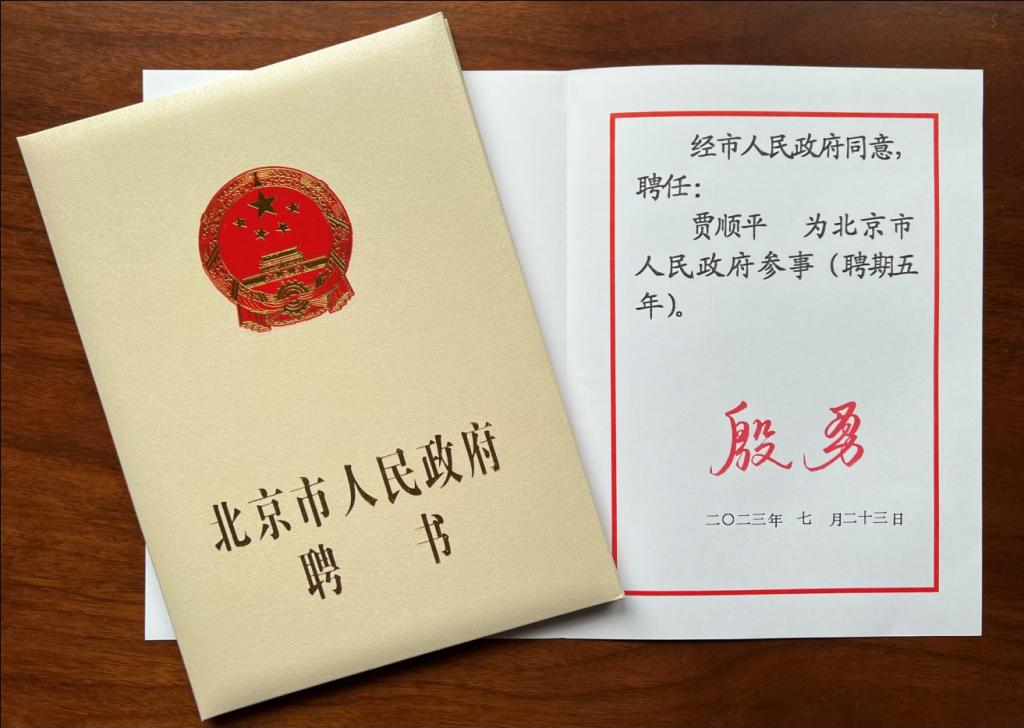 北京市人民政府
聘书
经市人民政府同意,
聘任:
贾顺平 为北京市
人民政府参事(聘期五
年)。
殷勇
二〇二三年 七 月二十三日